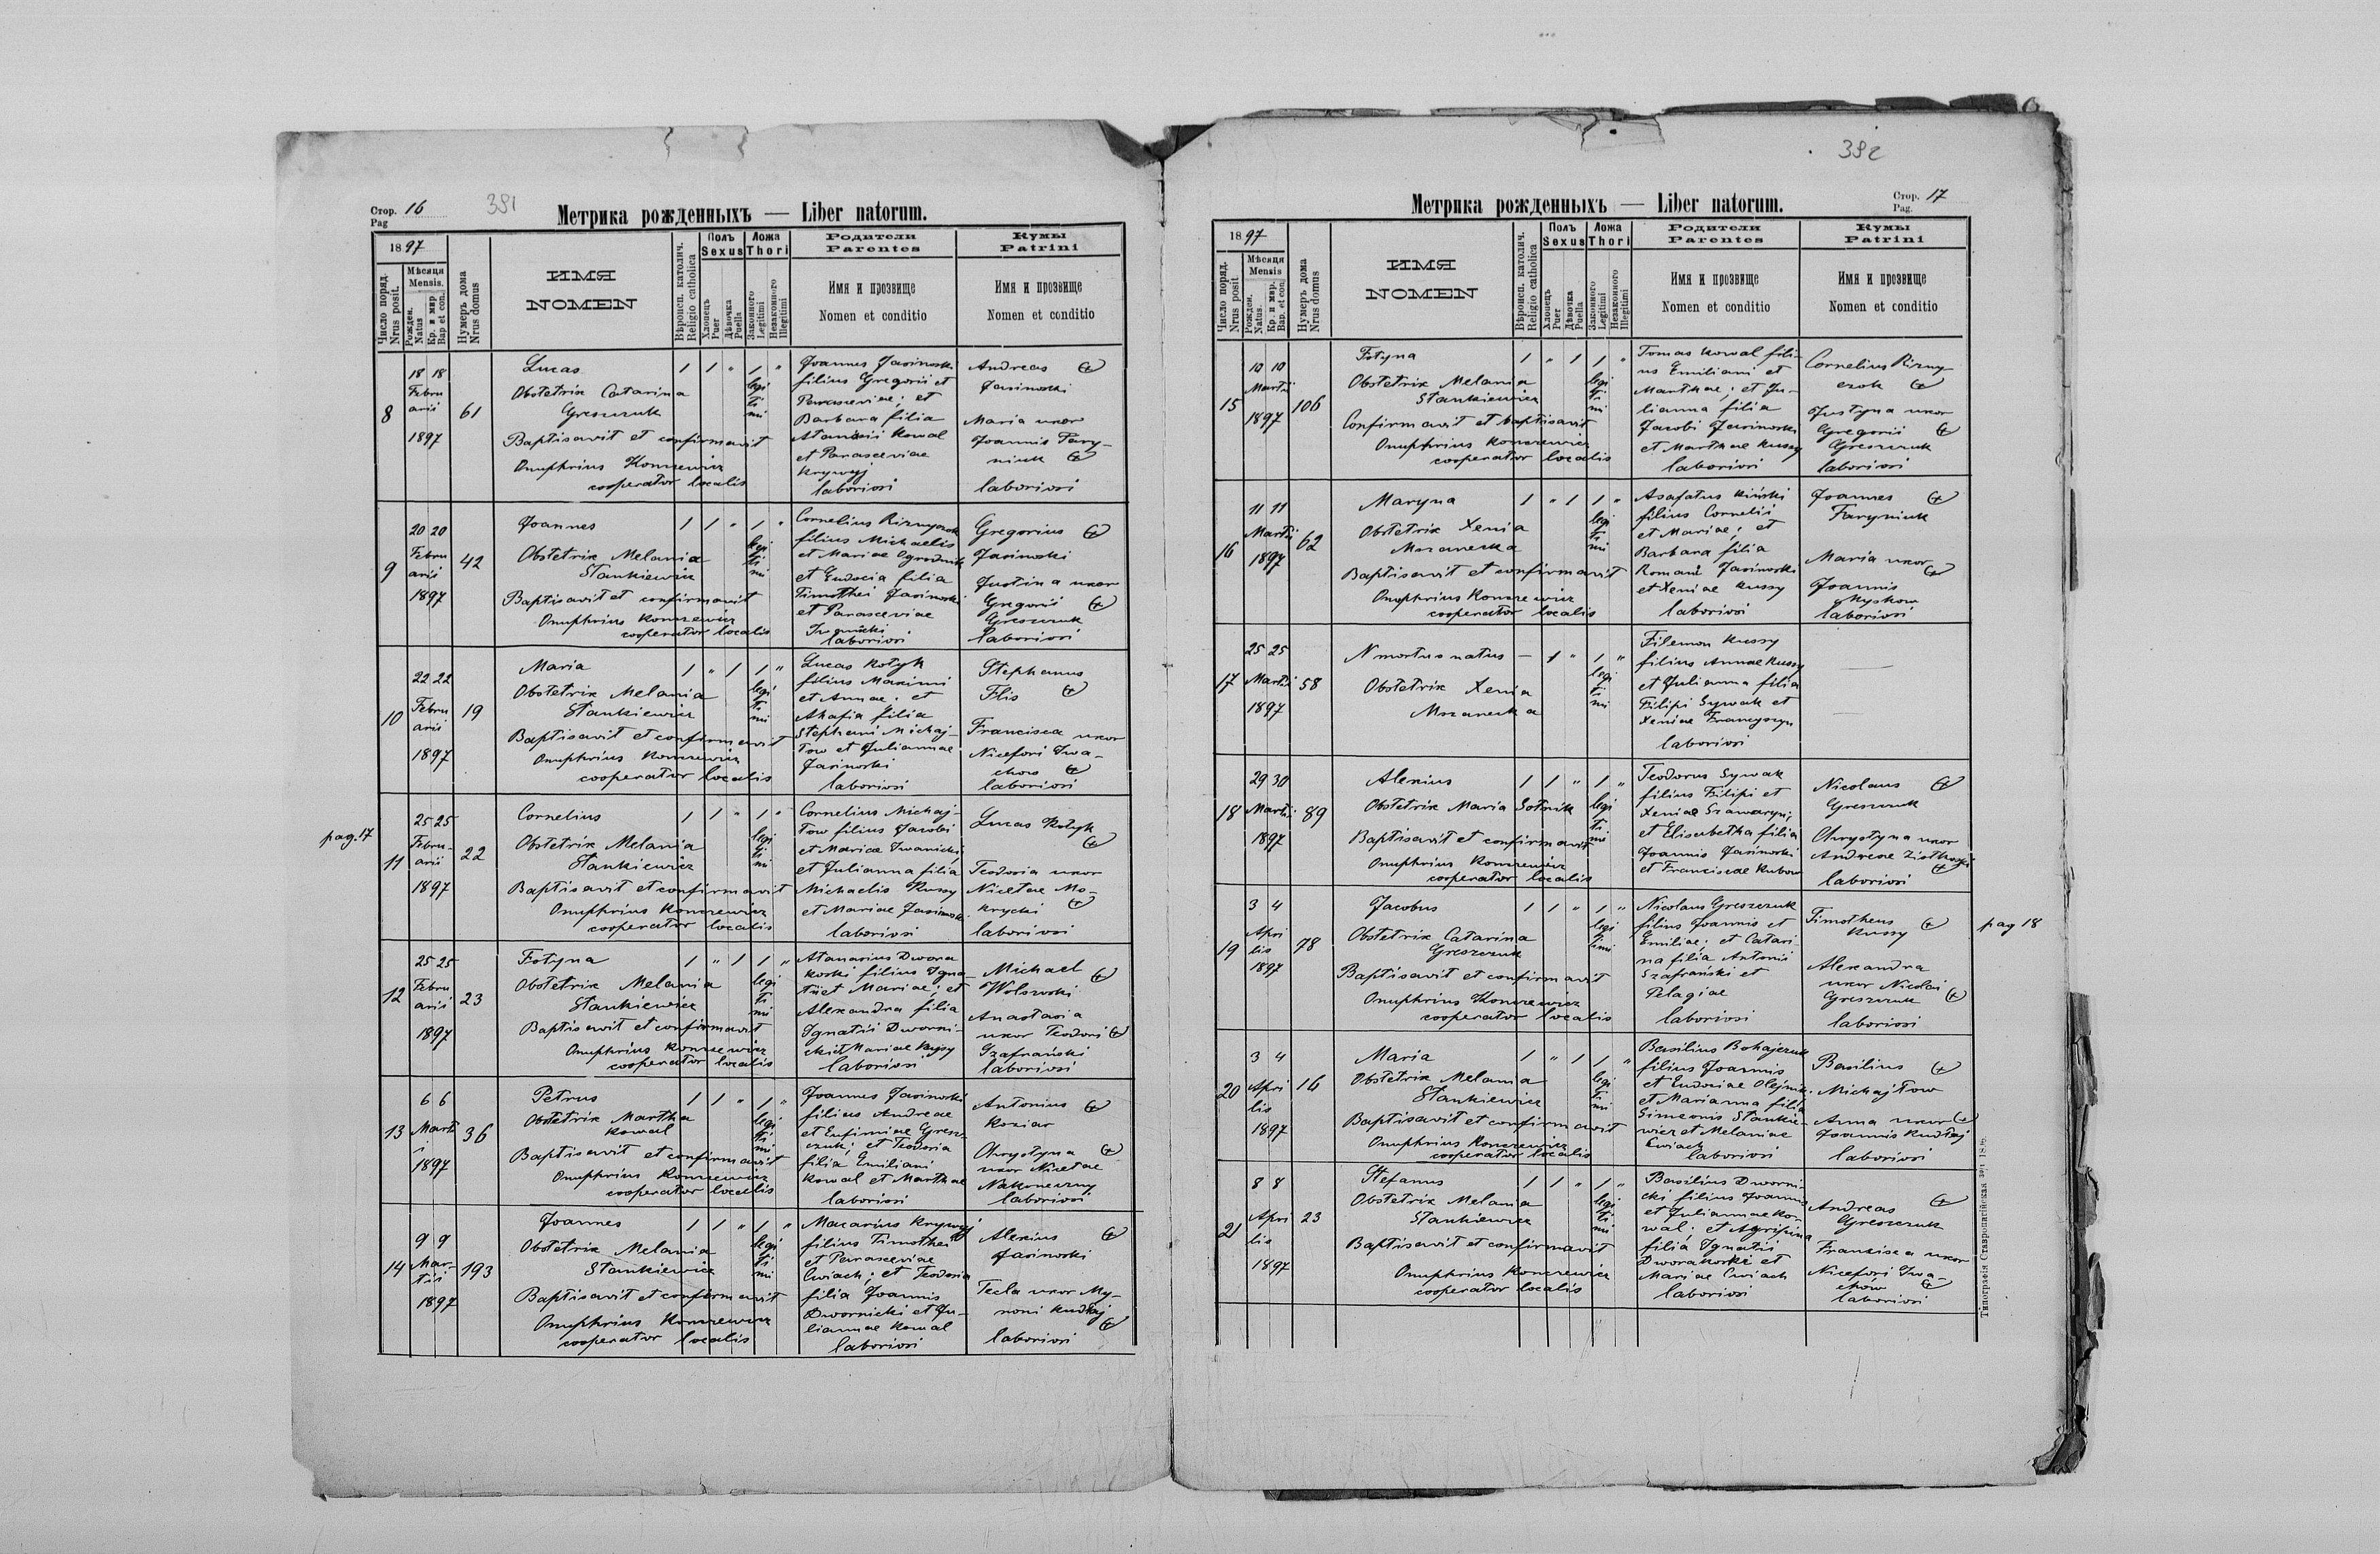 Стор. 16
Pag
391
Метрика рожденныхъ — Liber natorum.
1897
Число поряд. Nrus posit.
Мѣсяця Mensis.
Рожден. Natus
Кр. и мир. Bap et con.
Нумеръ дома Nrus domus
ИМЯ
NOMEN
Вѣроисп. католич. Religio catholica
Полъ Sexus
Хлопецъ Puer
Дѣвочка Puella
Ложа Thori
Законного Legitimi
Незаконного Illegitimi
Родители
Parentes
Имя и прозвище
Nomen et conditio
Кумы
Patrini
Имя и прозвище
Nomen et conditio
8
18 18
Febru
arii
1897
61
Lucas
Obstetrix Catarina
Greszczuk
Baptisavit et confirmavit
Onuphrius Konczewicz
cooperator localis
1 1 " 1 "
legi
ti
mi
Joannes Jasinski
filius Gregorii et
Parasceviae; et
Barbara filia
Atanasii Kowal
et Parasceviae
Krywyj
laboriosi
Andreas
Jasinski
Maria uxor
Joannis Fary-
niuk
laboriosi
9
20 20
Febru
arii
1897
42
Joannes
Obstetrix Melania
Stankiewicz
Baptisavit et confirmavit
Onuphrius Konczewicz
cooperator localis
1 1 " 1 "
legi
ti
mi
Cornelius Riznyczok
filius Michaelis
et Mariae Ogrodnik
et Eudocia filia
Timothei Jasinski
et Parasceviae
laboriosi
Gregorius
Jasinski
Justina uxor
Gregorii
Greszczuk
laboriosi
10
22 22
Febru
arii
1897
19
Maria
Obstetrix Melania
Stankiewicz
Baptisavit et confirmavit
Onuphrius Konczewicz
cooperator localis
1 " 1 1 "
legi
ti
mi
Lucas Kotyk
filius Maximi
et Annae; et
Ahafia filia
Stephani Michaj-
łow et Juliannae
Jasinski
laboriosi
Stephanus
Flis
Francisca uxor
Nicefori Iwa-
chow
laboriosi
pag. 17
11
25 25
Febru-
arii
1897
22
Cornelius
Obstetrix Melania
Stankiewicz
Baptisavit et confirmavit
Onuphrius Konczewicz
cooperator localis
1 1 " 1 "
legi
ti
mi
Cornelius Michaj-
łow filius Jacobi
et Mariae Iwanicki;
et Julianna filia
Michaelis Kussy
et Mariae Jasinski
laboriosi
Lucas Kotyk
Teodosia uxor
Nicetae Mo-
krycki
laboriosi
12
25 25
Febru
arii
1897
23
Fotyna
Obstetrix Melania
Stankiewicz
Baptisavit et confirmavit
Onuphrius Konczewicz
cooperator localis
1 " 1 1 "
legi
ti
mi
Atanasius Dwora
koski filius Igna-
tii et Mariae; et
Alexandra filia
Ignatii Dworni-
cki et Mariae Kussy
laboriosi
Michael
Wolszoski
Anastasia
uxor Teodori
Szafrański
laboriosi
13
6 6
Marti
i
1897
36
Petrus
Obstetrix Martha
Kowal
Baptisavit et confirmavit
Onuphrius Konczewicz
cooperator localis
1 1 " 1 "
legi
ti
mi
Joannes Jasinski
filius Andreae
et Eufimiae Gresz-
czuk; et Teodosia
filia Emiliani
Kowal et Marthae
laboriosi
Antonius
Koziar
Chrystyna
uxor Nicetae
Nakoneczny
laboriosi
14
9 9
Mar-
tii
1897
193
Joannes
Obstetrix Melania
Stankiewicz
Baptisavit et confirmavit
Onuphrius Konczewicz
cooperator localis
1 1 " 1 "
legi
ti
mi
Macarius Krywyj
filius Timothei
et Parasceviae
Cwiach; et Teodosia
filia Joannis
Dwornicki et Ju-
liannae Kowal
laboriosi
Alexius
Jasinowski
Tecla uxor My-
noni Kudłaj
laboriosi
392
Метрика рожденныхъ — Liber natorum.
Стор. 17
Pag.
1897
Число поряд. Nrus posit
Мѣсяця Mensis
Рожден. Natus.
Кр. и мир. Bap. et con
Нумеръ дома Nrus domus
ИМЯ
NOMEN
Вѣроисп. католич. Religio catholica
Полъ Sexus
Хлопецъ Puer
Дѣвочка Puella
Ложа Thori
Законного Legitimi
Незаконного Illegitimi
Родители
Parentes
Имя и прозвище
Nomen et conditio
Кумы
Patrini
Имя и прозвище
Nomen et conditio
15
10 10
Martii
1897
106
Fotyna
Obstetrix Melania
Stankiewicz
Confirmavit et baptisavit
Onuphrius Konczewicz
cooperator localis
1 " 1 1 "
legi
ti
mi
Tomas Kowal fili-
us Emiliani et
Marthae; et Ju-
lianna filia
Jacobi Jasinoski
et Marthae Kussy
laboriosi
Cornelius Rizny-
czok
Justyna uxor
Gregorii
Greszczuk
laboriosi
16
11 11
Martii
1897
62
Maryna
Obstetrix Xenia
Mszanecka
Baptisavit et confirmavit
Onuphrius Konczewicz
cooperator localis
1 " 1 1 "
legi
ti
mi
Asafatus Kiński
filius Cornelii
et Mariae; et
Barbara filia
Romani Jasinoski
et Xeniae Kussy
laboriosi
Joannes
Faryniuk
Maria uxor
Joannis
Myskow
laboriosi
17
25 25
Martii
1897
58
N mortuo natus
Obstetrix Xenia
Mszanecka
— 1 " 1 "
legi
ti
mi
Filemon Kussy
filius Annae Kussy
et Julianna filia
Filipi Sywak et
Xeniae Francyszyn
laboriosi
18
29 30
Martii
1897
89
Alexius
Obstetrix Maria Sotnik
Baptisavit et confirmavit
Onuphrius Konczewicz
cooperator localis
1 1 " 1 "
legi
ti
mi
Teodorus Sywak
filius Filipi et
Xeniae Szawaryn;
et Elisabetha filia
Joannis Jasinoski
et Franciscae Kubow
Nicolaus
Greszczuk
Chrystyna uxor
Andreae
laboriosi
19
3 4
Apri
lis
1897
78
Jacobus
Obstetrix Catarina
Greszczuk
Baptisavit et confirmavit
Onuphrius Konczewicz
cooperator localis
1 1 " 1 "
legi
timi
Nicolaus Greszczuk
filius Joannis et
Emiliae; et Catari-
na filia Antonii
Szafrański et
Pelagiae
laboriosi
Timotheus
Kussy
Alexandra
uxor Nicolai
Greszczuk
laboriosi
pag 18
20
3 4
Apri
lis
1897
16
Maria
Obstetrix Melania
Stankiewicz
Baptisavit et confirmavit
Onuphrius Konczewicz
cooperator localis
1 " 1 1 "
legi
ti
mi
Basilius Bohajczuk
filius Joannis
et Eudoxiae Olejnik
et Marianna filia
Simeonis Stankie-
wicz et Melaniae
Cwiach
laboriosi
Basilius
Michajłow
Anna uxor
Joannis Kudłaj
laboriosi
21
8 8
Apri
lis
1897
23
Stefanus
Obstetrix Melania
Stankiewicz
Baptisavit et confirmavit
Onuphrius Konczewicz
cooperator localis
1 1 " 1 "
legi
ti
mi
Basilius Dworni-
cki filius Joannis
et Juliannae Ko-
wal; et Agripina
filia Ignatii
Dworakoski et
Mariae Cwiach
laboriosi
Andreas
Greszczuk
Francisca uxor
Nicefori Iwa-
chów
laboriosi
Типографія Ставропигійская